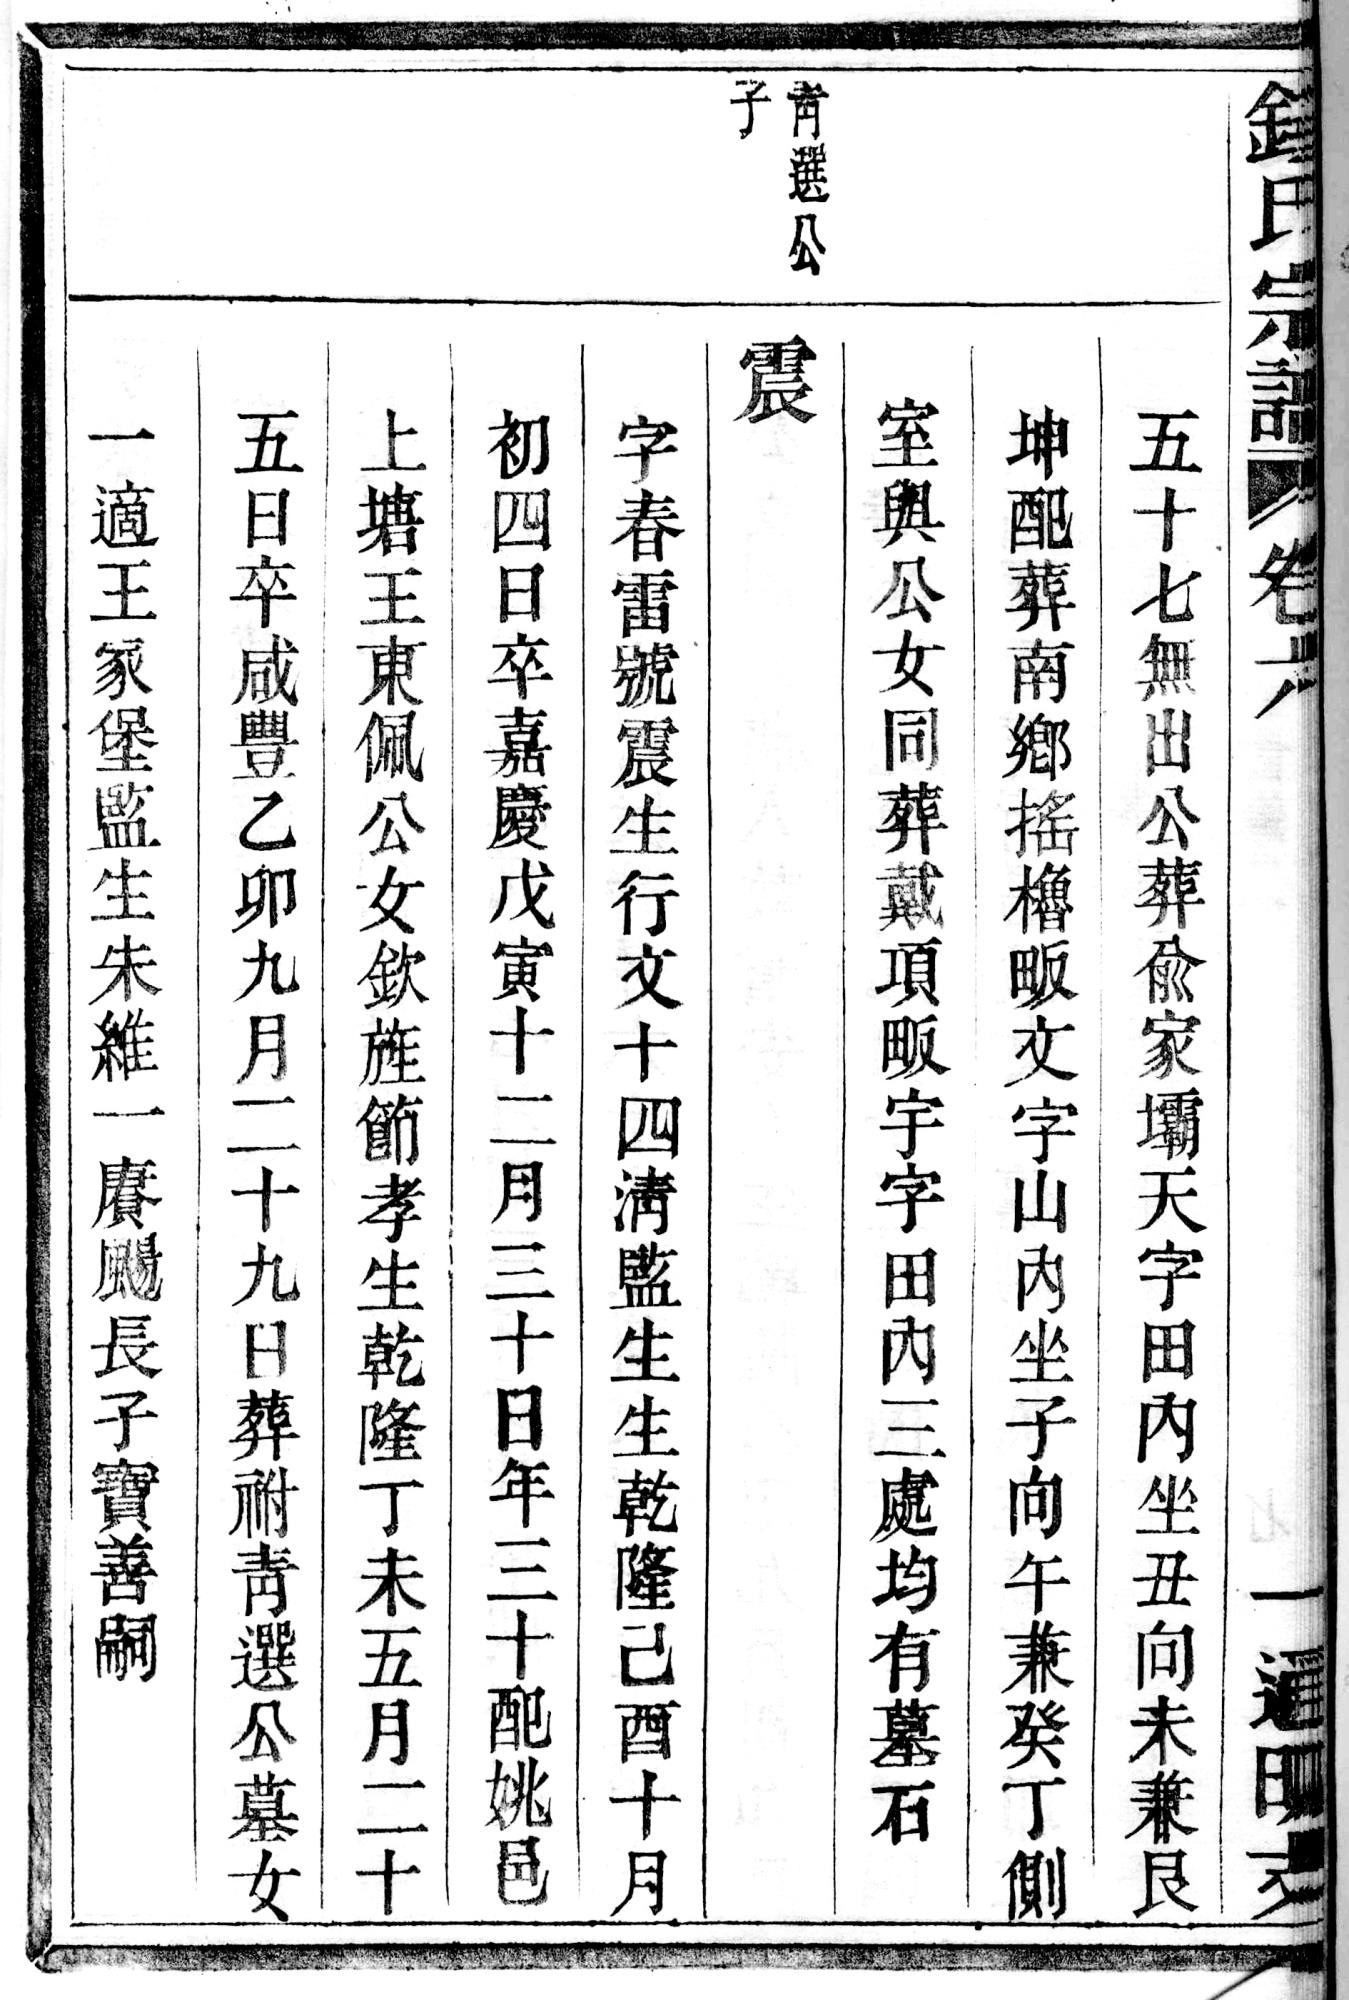 氏宗譜 卷六 一 通明支
五十七無出公葬俞家壩天字田內坐丑向未兼艮
坤配葬南鄉搖櫓畈文字山內坐子向午兼癸丁側
室與公女同葬戴項畈宇字田內三處均有墓石
青選公
子
震
字春雷號震生行文十四清監生生乾隆己酉十月
初四日卒嘉慶戊寅十二月三十日年三十配姚邑
上塘王東佩公女欽旌節孝生乾隆丁未五月二十
五日卒咸豐乙卯九月二十九日葬祔青選公墓女
一適王家堡監生朱維一賡颺長子寶善嗣